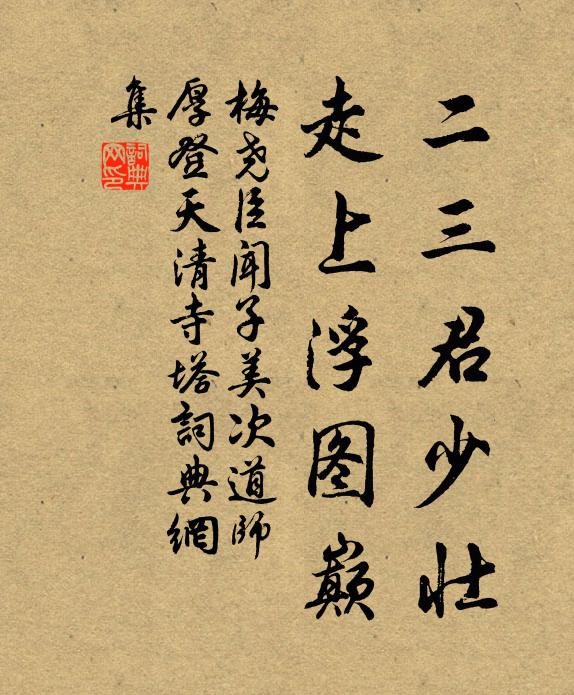 二三君少壮
走上浮图巅
梅尧臣闻子美次道师
厚登天清寺塔詞典網
集
詞典网印